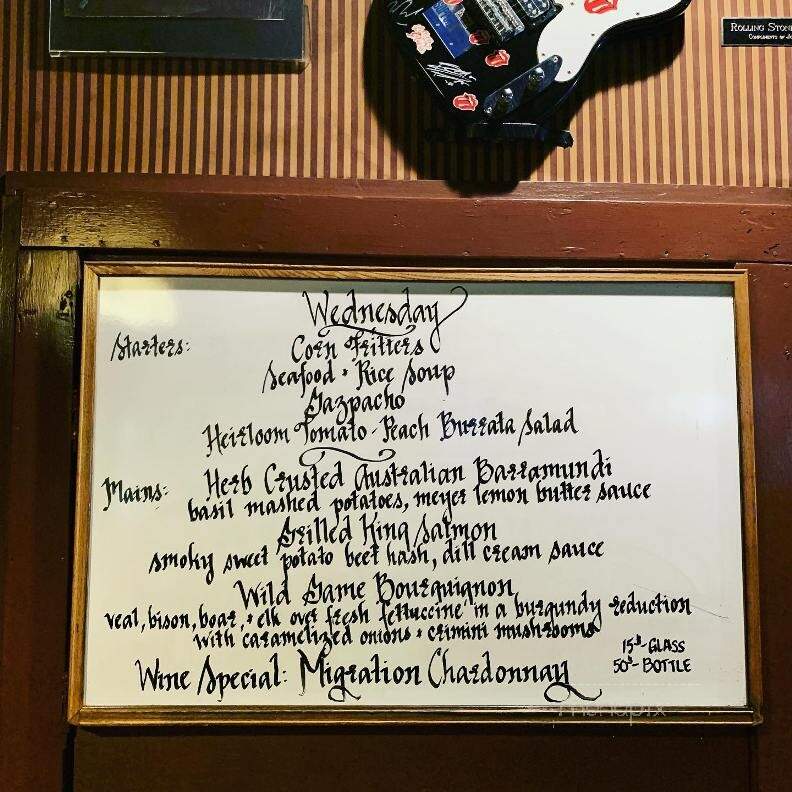 ROLLING STONE
COMPLIMENTS OF
Wednesday
Starters:
Corn Fritters
Seafood + Rice Soup
Gazpacho
Heirloom Tomato - Peach Burrata Salad
Mains: Herb Crusted Australian Barramundi
basil mashed potatoes, meyer lemon butter sauce
Grilled King Salmon
smoky sweet potato beet hash, dill cream sauce
Wild Game Bourguignon
veal, bison, boar, + elk over fresh fettuccine in a burgundy reduction
with caramelized onions + crimini mushrooms
15-GLASS
50-BOTTLE
Wine Special: Migration Chardonnay
menupix